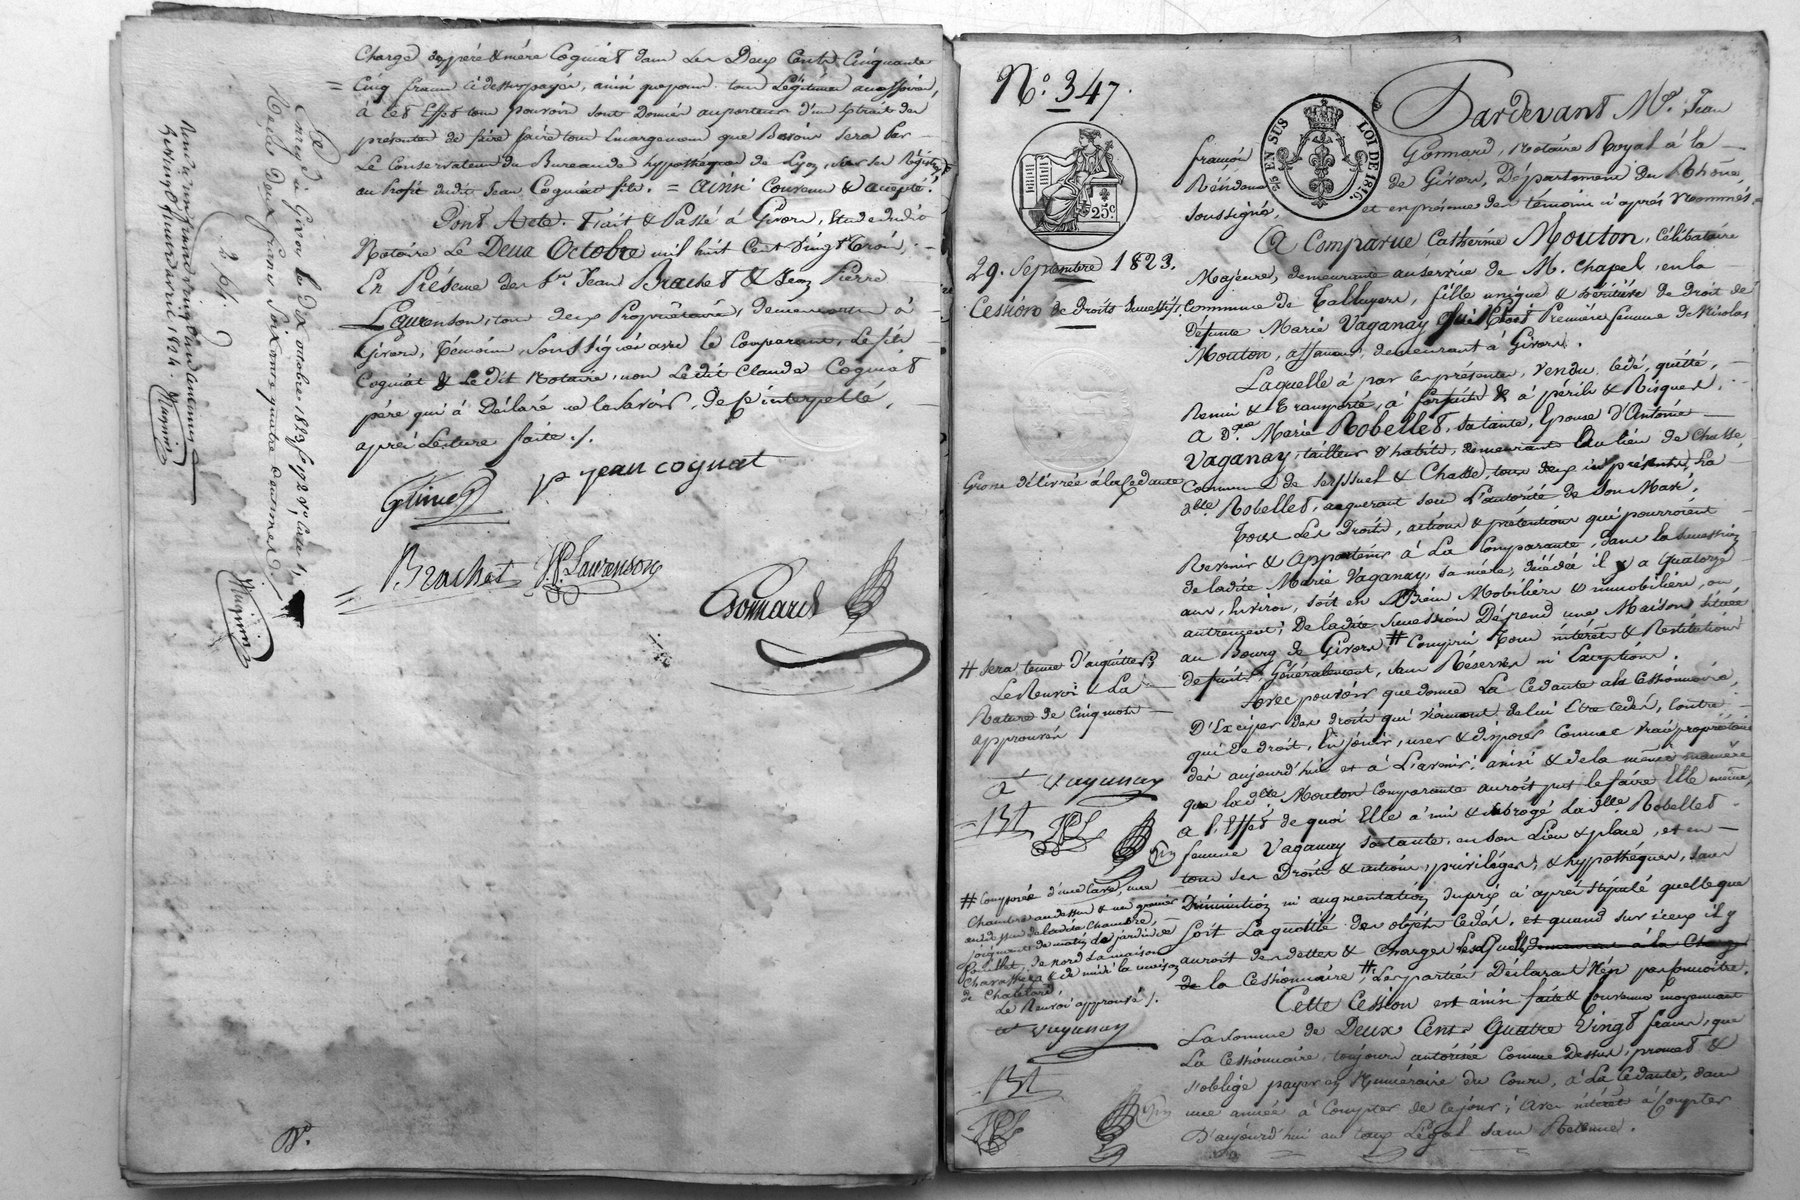 Charge des père & mère Cogniat dans les Deux Cents Cinquante
Cinq francs ci dessus payés, ainsi que pour tous Légitimes accessoires,
à cet Effet tous pouvoirs sont Donnés au porteur d'un Extrait des
présentes de faire faire tous Emargemens que Besoin sera par
Le Conservateur du Bureau des hypothèques de Lyon, sur ses Régistres
au Profit dudit Jean Cogniat fils. = ainsi Convenu & accepté.
Dont Acte. Fait & Passé à Givors, Etude dudit
Notaire Le Deux Octobre mil huit Cent Vingt Trois,
En Présence des Srs Jean Brachet & Jean Pierre
Laurenson, tous deux Propriétaires, demeurants à
Givors, Témoins, soussignés avec le Comparant, Le fils
Cogniat & Le Dit Notaire, non Le dit Claude Cogniat
père qui à Déclaré ne le savoir, de ce interpellé,
après Lecture faite ./.
jean cogniat
Brachet JP Laurenson
Gonnard
Enregé à Givors le dix octobre 1823, fo 192 Vo Case 1,
Reçu deux francs Soixante quatre centimes
Magnin
Givors le quinze avril 1824
Magnin
No. 347.
EN SUS
LOI DE 1816
25c
29. Septembre 1823.
Cession de droits Successifs
Grosse délivrée à la Cedante
Pardevant Me. Jean
françois Gonnard, Notaire Royal à la
Résidence de Givors, Département du Rhône,
soussigné, et en présence des témoins ci après Nommés.
A Comparue Catherine Mouton, Célibataire
Majeure, demeurante au service de M. Chapel, en la
Commune de Talluyers, fille unique & héritière de droit de
defunte Marie Vaganay qui étoit Première femme de Nicolas
Mouton, affaneur, demeurant à Givors.
Laquelle à par les présentes, Vendu, Cédé, quitté,
Remis & Transporté, à forfait & à périls & Risques,
A De. Marie Robellet, sa tante, Epouse d'Antoine
Vaganay, tailleur d'habits, demeurants Au lieu de Chasse
Commune de Seyssuel & Chasse, tous deux ici présents, La
dite Robellet, acquerant sous L'autorité de Son Mari.
Tous Les Droits, actions & prétentions qui pourroient
Revenir & Appartenir à La Comparante, dans la succession
de ladite Marie Vaganay, sa mère, décédée il y a quatorze
ans, Environ, soit en Biens Mobiliers & immobiliers, ou
autrement; De ladite succession Dépend une Maison située
au Bourg de Givors, # Compris Tous intérêts & Restitutions
de fruits Généralement, sans Réserves ni Exceptions.
Avec pouvoir que donne La Cedante à la Cessionnaire,
D'Exciper des droits qui viennent de lui Etre cedés, contre
qui de droit, En jouir, user & disposer Comme Vraie propriétaire
dès aujourd'hui et à L'avenir; ainsi & de la même manière
que la dite Mouton Comparante auroit pus le faire Elle même,
A l'Effet de quoi Elle à mis & subrogé La dlle Robellet
femme Vaganay sa tante, en son Lieu & place, et en
tous ses Droits & actions, privilèges, & hypothèques, sans
Diminution ni augmentation du prix ci après stipulé quelle que
soit La quotité des objets Cedés, et quand sur iceux il y
auroit des dettes & Charges lesquelles demeurent à la Charge
de la Cessionnaire #, Les parties Déclarant N'en pas connoitre.
Cette Cession est ainsi faite & Convenue moyennant
La somme de Deux Cents Quatre Vingt francs, que
La Cessionnaire, toujours autorisée Comme dessus, promet &
s'oblige payer en Numéraire du Cours, à La Cedante, dans
une année à Compter de Ce jour; Avec intérêts à Compter
D'aujourd'hui au taux Légal sans Retenue.
# sera tenue d'acquitter;
Le Renvoi & La
Rature de Cinq mots
approuvés
A Vaganay
# Composée d'une Cave, une
Chambre au dessus & un grenier
au dessus de ladite Chambre,
joignant de matin le jardin de
de nord La maison
& de midi la maison
de Chatelard.
Le Renvoi approuvé ./.
A Vaganay